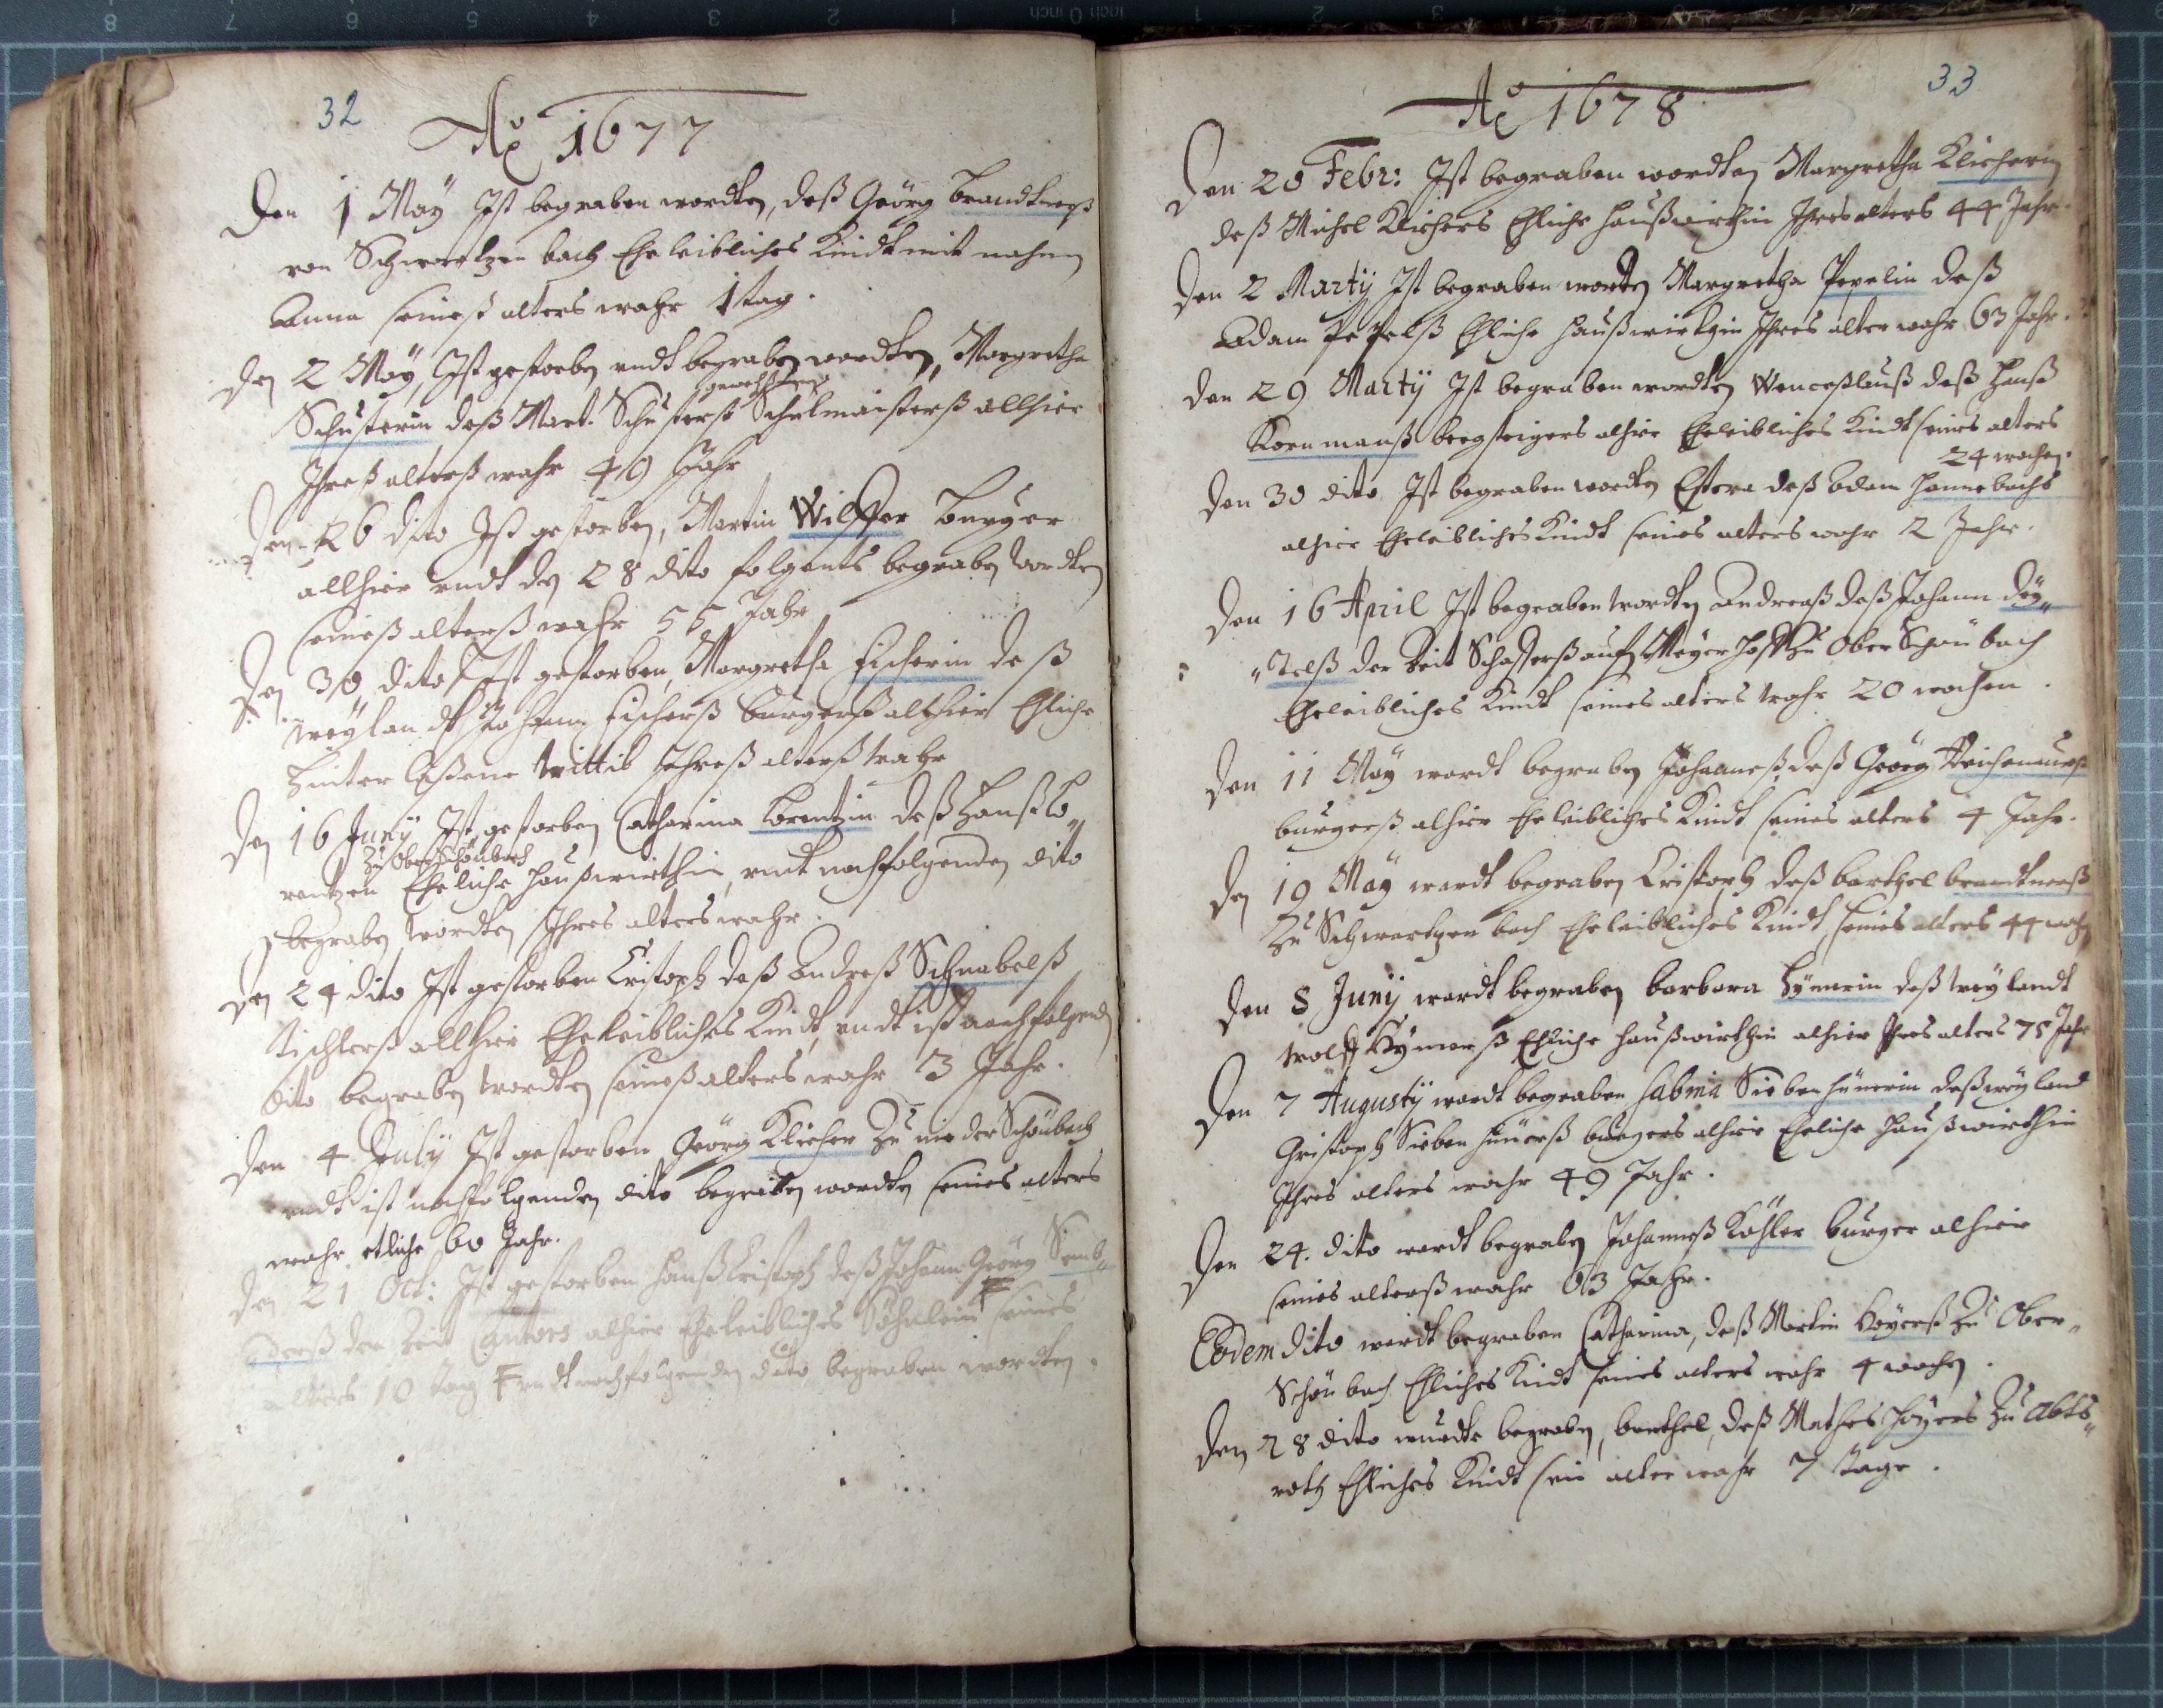 32
Ao 1677
Den 1 May Ist begraben wordten, deß Georg Brandtners
von Schwartzenbach Eheleibliches Kindt mit nahmen
Anna seineß alters wahr 1 tag.
Den 2 May, Ist gestorben undt begraben wordten, Margretha
gewesten
Schusterin deß Mart. Schusterß Schulmaisterß allhier
Ihreß alterß wahr 49 Jahr
Den 26 dito Ist gestorben, Martin Wilffer Burger
allhier undt den 28 dito folgents begraben wordten
seineß alterß wahr 55 Jahr
Den 30 dito Ist gestorben, Margretha Fischerin deß
weylandt Johann Fischerß Burgerß allhier Ehliche
hinterlaßene wittib Ihreß alterß wahr
Den 16 Juny Ist gestorben Catharina Lorentzin deß Hanß Lo„
zu Oberschönbach
rentzen Eheliche Haußwirthin, undt nachfolgenden dito
begraben wordten Ihres alters wahr.
Den 24 dito Ist gestorben Cristoph deß Andreß Schnabelß
Tischlerß allhier Eheleibliches Kindt, undt ist nachfolgend
dito begraben wordten seineß alters wahr 3 Jahr.
Den 4 July Ist gestorben Georg Klieher zu niederSchönbach
undt ist nachfolgenden dito begraben wordten seines alters
wahr etliche 60 Jahr.
Den 21 Oct: Ist gestorben Hanß Cristoph deß Johann Georg
der Zeit Cantors alhier Eheleibliches Söhnlein seines
alters 10 tag undt nachfolgenden dito begraben wordten.
33
Ao 1678
Den 20 Febr: Ist begraben wordten Margretha Klieherin
deß Michel Kliehers Ehliche Haußwirthin Ihres alters 44 Jahr.
Den 2 Marty Ist begraben worden Margretha Pepelin deß
Adam Pepelß Ehliche Haußwirthin Ihres alter wahr 63 Jahr.
Den 29 Marty Ist begraben wordten Wenceßlauß deß Hanß
Kornmanß bergsteigers alhier Eheleibliches Kindt seines alters
24 wochen.
Den 30 dito Ist begraben wordten Estera deß Adam Hannebachs
alhier Eheleibliches Kindt seines alters wahr 2 Jahr.
Den 16 April Ist begraben wordten Andreaß deß Johann Dey„
„telß der Zeit Schafferß aufm Meyerhoff zu Ober Schönbach
Eheleibliches Kindt seines alters wahr 20 wochen.
Den 11 May wardt begraben Johanneß, deß Georg
burgerß alhier Eheleibliches Kindt seines alters 4 Jahr.
Den 19 May wardt begraben Cristoph deß barthel brandtnerß
Zu Schwartzenbach Eheleibliches Kindt, seines alters 44 wochen
Den 8 Juny wardt begraben barbara Hymerin deß weylandt
wolff Hymerß Ehliche Haußwirthin alhier Ihres alters 75 Jahr
Den 7 Augusty wardt begraben Sabina Siebenhünerin deß weyland
Cristoph Siebenhünerß burgers alhier Eheliche Haußwirthin
Ihres alters wahr 49 Jahr.
Den 24. dito wardt begraben Johanneß Köhler burger alhier
seines alterß wahr 63 Jahr.
Eodem dito wardt begraben Catharina, deß Martin Hoyerß zu Ober„
Schönbach Ehliches Kindt seines alters wahr 4 wochen.
Den 28 dito wurdte begraben, barthel, deß Mathes Hoyers zu Abts„
roth Ehliches Kindt sein alter wahr 7 Tage.